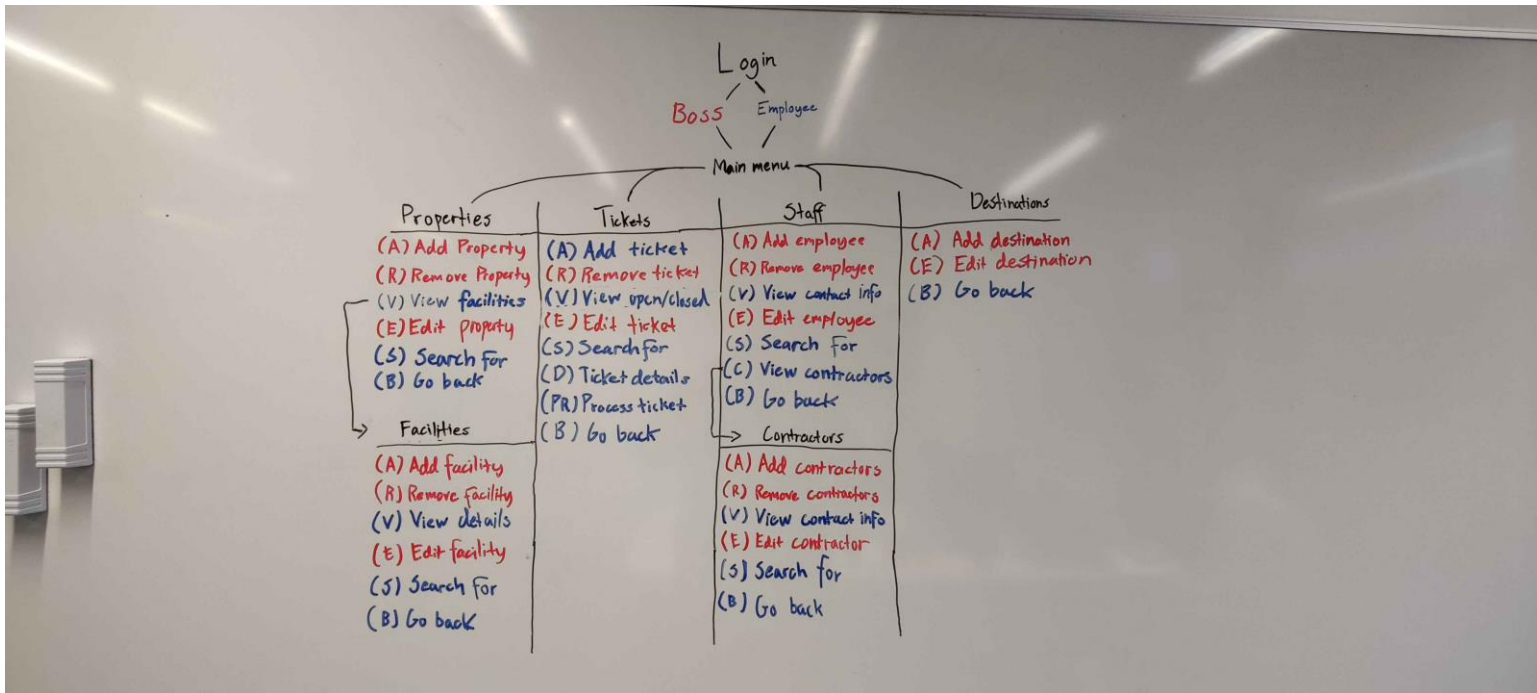 Login
Boss
Employee
Main menu
Properties
(A) Add Property
(R) Remove Property
(V) View facilities
(E) Edit property
(S) Search for
(B) Go back
Facilities
(A) Add facility
(R) Remove facility
(V) View details
(E) Edit facility
(S) Search for
(B) Go back
Tickets
(A) Add ticket
(R) Remove ticket
(V) View open/closed
(E) Edit ticket
(S) Search for
(D) Ticket details
(PR) Process ticket
(B) Go back
Staff
(A) Add employee
(R) Remove employee
(V) View contact info
(E) Edit employee
(S) Search for
(C) View contractors
(B) Go back
Contractors
(A) Add contractors
(R) Remove contractors
(V) View contact info
(E) Edit contractor
(S) Search for
(B) Go back
Destinations
(A) Add destination
(E) Edit destination
(B) Go back